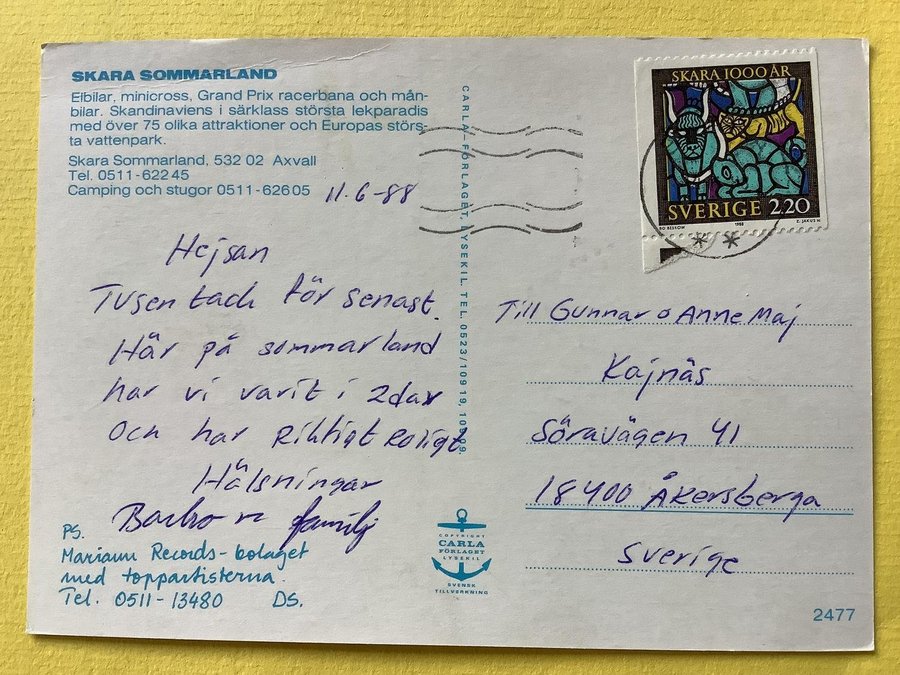 SKARA SOMMARLAND
Elbilar, minicross, Grand Prix racerbana och mån-
bilar. Skandinaviens i särklass största lekparadis
med över 75 olika attraktioner och Europas störs-
ta vattenpark.
Skara Sommarland, 532 02 Axvall
Tel. 0511-622 45
Camping och stugor 0511-626 05
11.6-88
Hejsan
Tusen tack för senast.
Här på sommarland
har vi varit i 2dar
och har Riktigt Roligt
Hälsningar
familj
PS.
Mariann Records-bolaget
med toppartisterna.
Tel. 0511-13480 DS.
CARLA-FÖRLAGET, LYSEKIL. TEL. 0523/109 19, 109 09
COPYRIGHT
CARLA
FÖRLAGET
LYSEKIL
SVENSK
TILLVERKNING
SKARA 1000 ÅR
SVERIGE 2.20
BO BESKOW
1988
Z. JAKUS
Till Gunnar o Anne Maj
Kajnäs
Söravägen 41
18400 Åkersberga
Sverige
2477